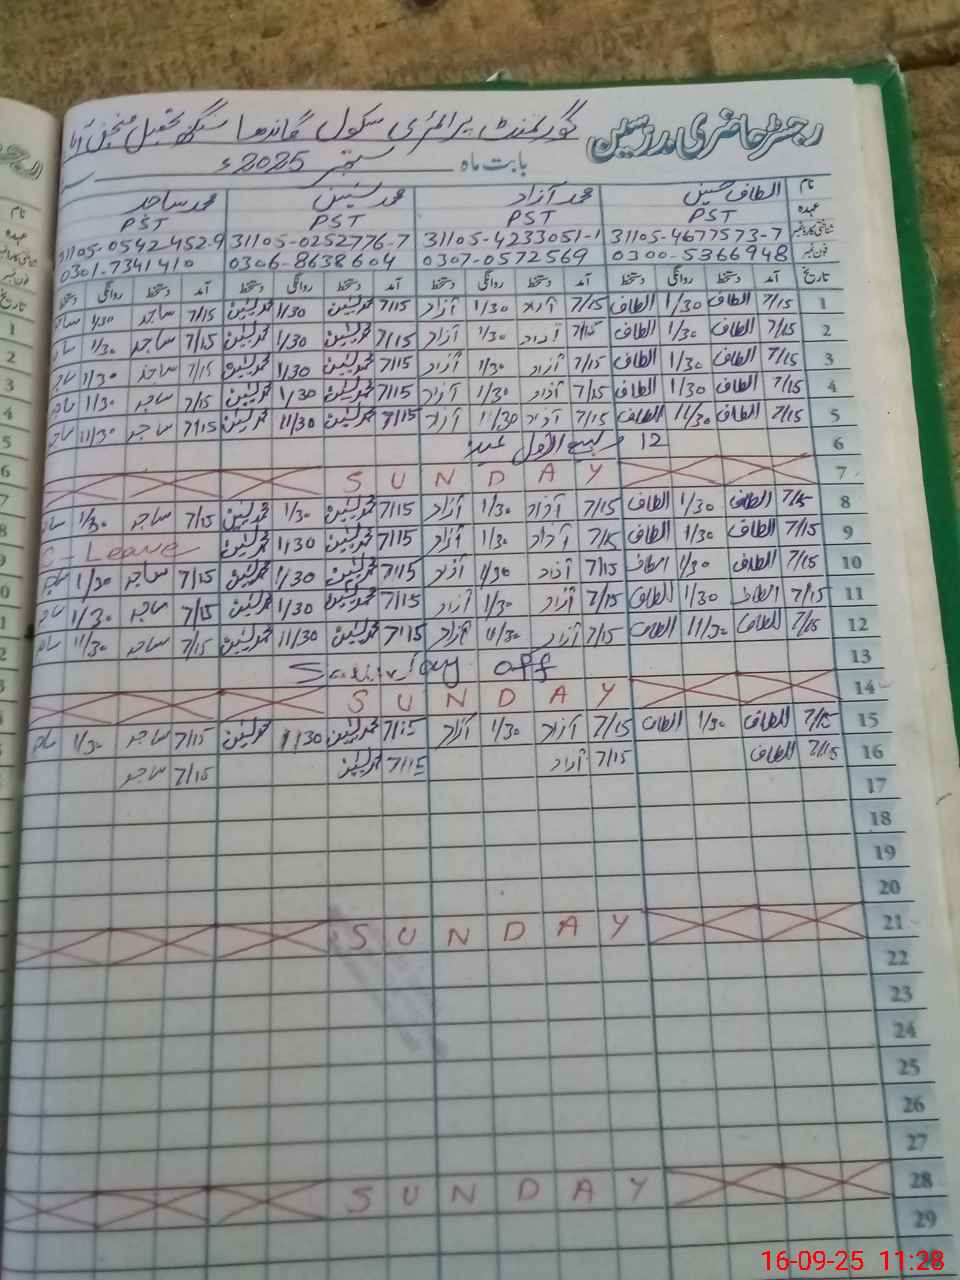 رجسٹر حاضری مدرسین گورنمنٹ پرائمری سکول گاندھا سنگھ تحصیل منچن آباد
بابت ماہ ستمبر 2025ء
نام الطاف حسین محمد آزاد محمد یٰسین محمد ساجد
عہدہ PST PST PST PST
شناختی کارڈ نمبر 31105-4677573-7 31105-4233051-1 31105-0252776-7 31105-0542452-9
فون نمبر 0300-5366948 0307-0572569 0306-8638604 0301-7341410
تاریخ آمد دستخط روانگی دستخط آمد دستخط روانگی دستخط آمد دستخط روانگی دستخط آمد دستخط روانگی دستخط
1 7/15 الطاف 1/30 الطاف 7/15 آزاد 1/30 آزاد 7/15 محمد یٰسین 1/30 محمد یٰسین 7/15 ساجد 1/30 ساجد
2 7/15 الطاف 1/30 الطاف 7/15 آزاد 1/30 آزاد 7/15 محمد یٰسین 1/30 محمد یٰسین 7/15 ساجد 1/30
3 7/15 الطاف 1/30 الطاف 7/15 آزاد 1/30 آزاد 7/15 محمد یٰسین 1/30 محمد یٰسین 7/15 ساجد 1/30
4 7/15 الطاف 1/30 الطاف 7/15 آزاد 1/30 آزاد 7/15 محمد یٰسین 1/30 محمد یٰسین 7/15 ساجد 1/30
5 7/15 الطاف 11/30 الطاف 7/15 آزاد 11/30 آزاد 7/15 محمد یٰسین 11/30 محمد یٰسین 7/15 ساجد 11/30
6 12 ربیع الاول
7 SUNDAY
8 7/15 الطاف 1/30 الطاف 7/15 آزاد 1/30 آزاد 7/15 محمد یٰسین 1/30 محمد یٰسین 7/15 ساجد 1/30
9 7/15 الطاف 1/30 الطاف 7/15 آزاد 1/30 آزاد 7/15 محمد یٰسین 1/30 محمد یٰسین C-Leave
10 7/15 الطاف 1/30 الطاف 7/15 آزاد 1/30 آزاد 7/15 محمد یٰسین 1/30 محمد یٰسین 7/15 ساجد 1/30
11 7/15 الطاف 1/30 الطاف 7/15 آزاد 1/30 آزاد 7/15 محمد یٰسین 1/30 محمد یٰسین 7/15 ساجد 1/30
12 7/15 الطاف 11/30 الطاف 7/15 آزاد 11/30 آزاد 7/15 محمد یٰسین 11/30 محمد یٰسین 7/15 ساجد 11/30
13 Saturday off
14 SUNDAY
15 7/15 الطاف 1/30 الطاف 7/15 آزاد 1/30 آزاد 7/15 محمد یٰسین 1/30 محمد یٰسین 7/15 ساجد 1/30
16 7/15 الطاف 7/15 آزاد 7/15 محمد یٰسین 7/15 ساجد
17
18
19
20
21 SUNDAY
22
23
24
25
26
27
28 SUNDAY
29
16-09-25 11:28